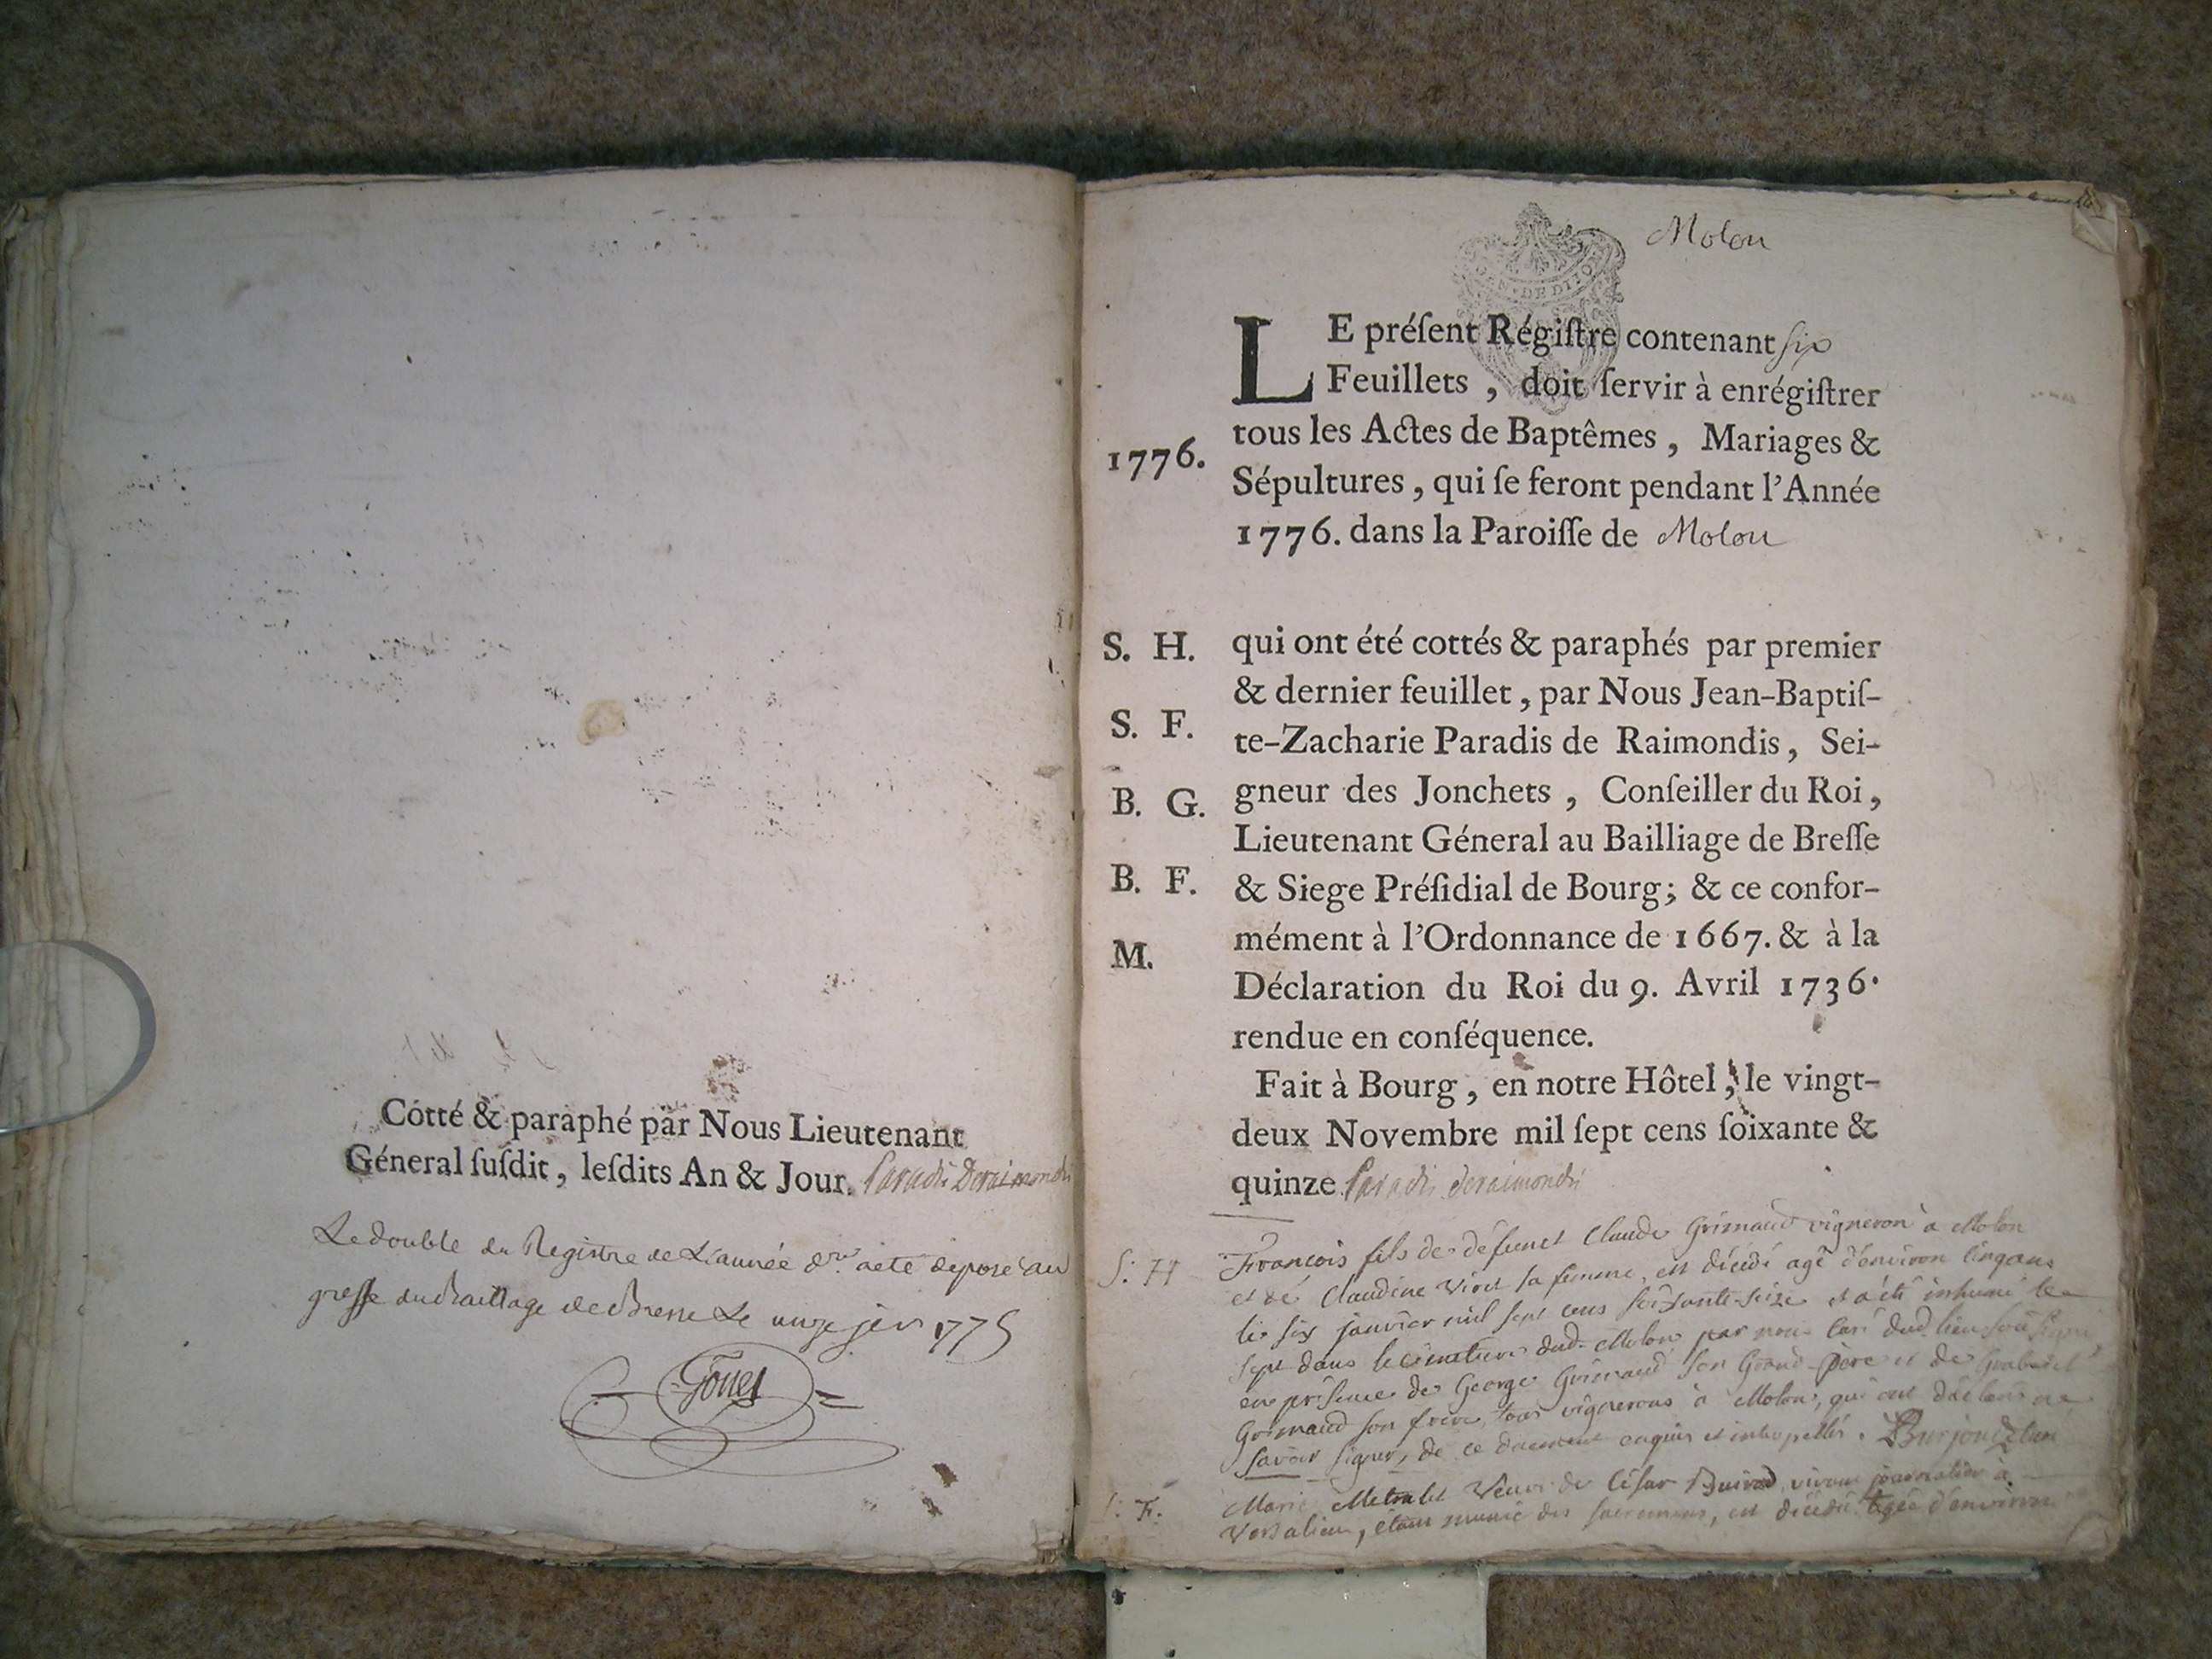 Cotté & paraphé par Nous Lieutenant
Géneral ſuſdit, leſdits An & Jour. Paradis Deraimondis
Le double du Registre de L'année dre aeté déposé au
greffe du Bailliage de Bresse Le onze jer 1775
Gouet
Molon
LE préſent Régiſtre contenant six
Feuillets, doit ſervir à enrégiſtrer
tous les Actes de Baptêmes, Mariages &
1776.
Sépultures, qui ſe feront pendant l'Année
1776. dans la Paroiſſe de Molon
S. H.
qui ont été cottés & paraphés par premier
& dernier feuillet, par Nous Jean-Baptiſ-
S. F.
te-Zacharie Paradis de Raimondis, Sei-
B. G.
gneur des Jonchets, Conſeiller du Roi,
Lieutenant Géneral au Bailliage de Breſſe
B. F.
& Siege Préſidial de Bourg; & ce confor-
mément à l'Ordonnance de 1667. & à la
M.
Déclaration du Roi du 9. Avril 1736.
rendue en conſéquence.
Fait à Bourg, en notre Hôtel, le vingt-
deux Novembre mil ſept cens ſoixante &
quinze. Paradis deraimondis
S: H
François fils de défunct Claude Grimaud vigneron à Molon
et de Claudine Viret sa femme, est décédé agé d'environ cinq ans
le six janvier mil sept cens soixante-seize et a été inhumé le
sept dans le cimetiere dud. Molon par nous Curé dud. lieu soussigné
en présence de George Grimaud son Grand-père et de
Grimaud son frère, tous vignerons à Molon, qui ont déclaré ne
savoir signer, de ce duement enquis et interpellés.
S: F.
Marie Metralet Veuve de César Buirod, vivant journalier à
Versalieu, étant munie des sacremens, est décédée agée d'environ